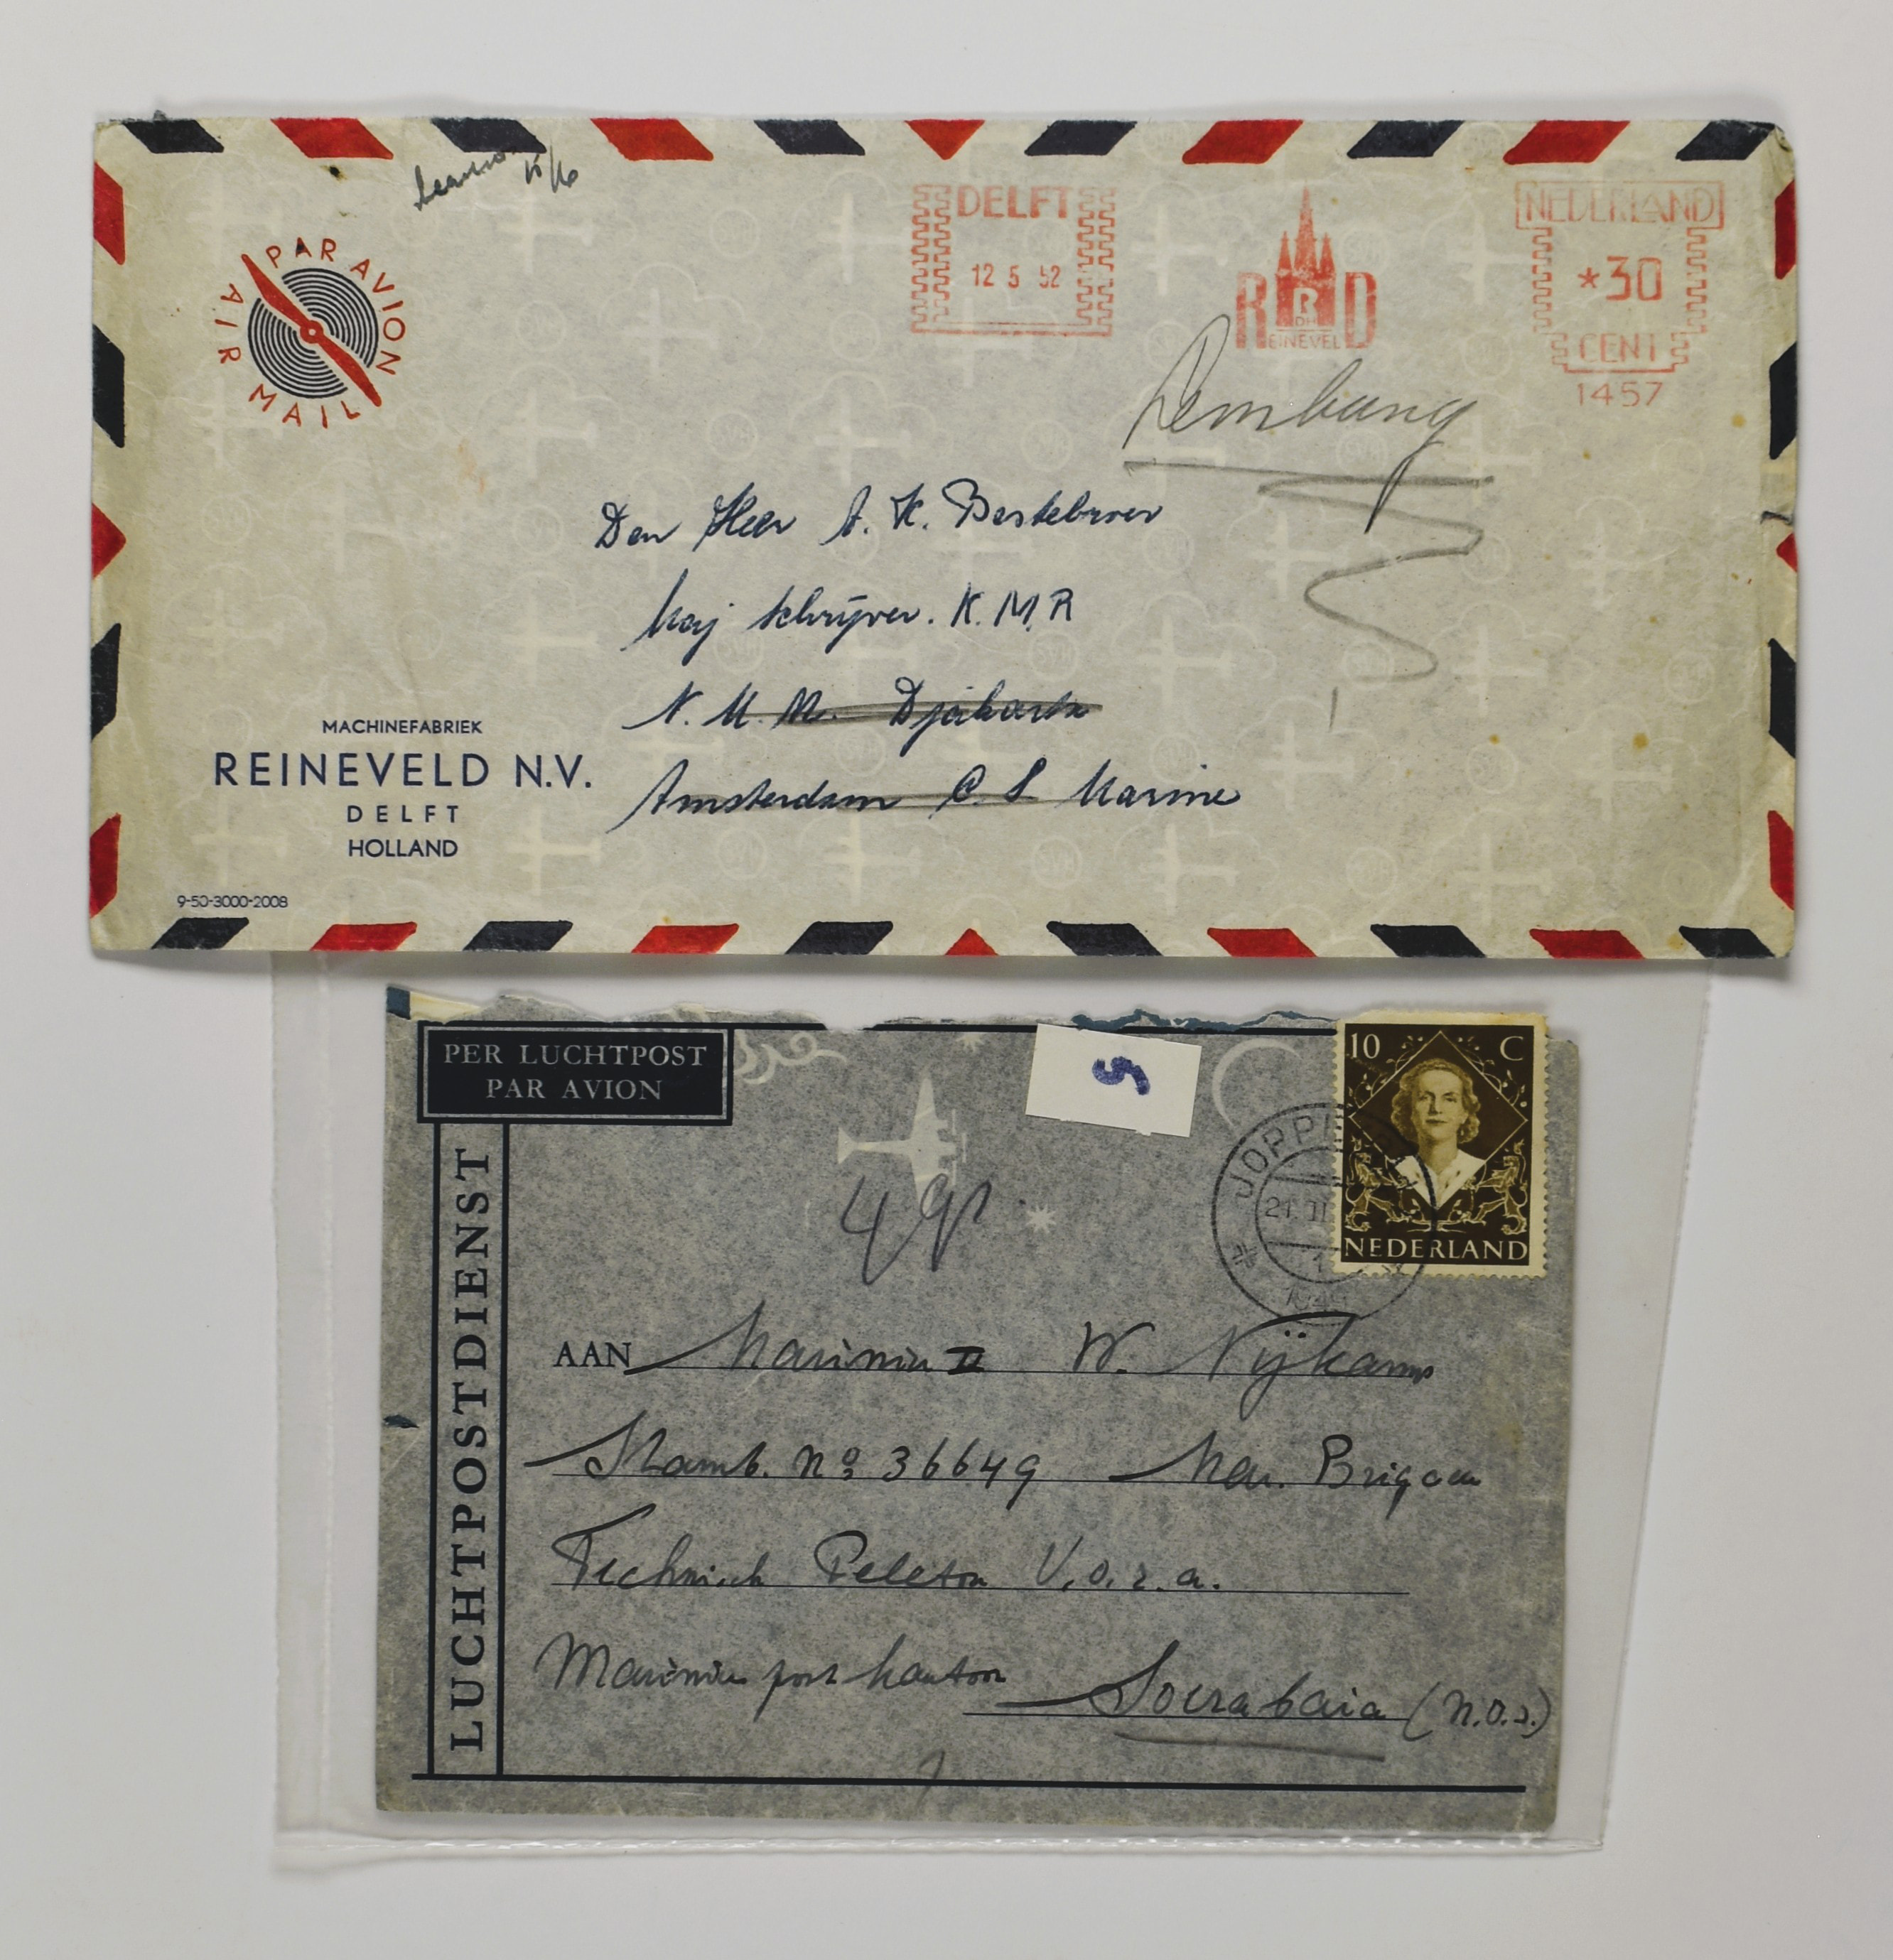 15/6
PAR AVION
AIR MAIL
DELFT
12 5 52
R R D
DH
EINEVEL
NEDERLAND
*30
CENT
1457
Lembang
Den Heer A. K. Bestebroer
Maj schrijver. K.M.R
N. M. M. Djakarta
Amsterdam C. S Marine
MACHINEFABRIEK
REINEVELD N.V.
DELFT
HOLLAND
9-50-3000-2008
PER LUCHTPOST
PAR AVION
5
10 C
NEDERLAND
JOPPE
21. II
LUCHTPOSTDIENST
4 gr.
AAN Marinier II W. Nijkamp
Stamb. No 36649 Mar. Brigade
Technisch Peleton V.O.z.a.
Mariniers postkantoor
Soerabaia (N.O.I.)